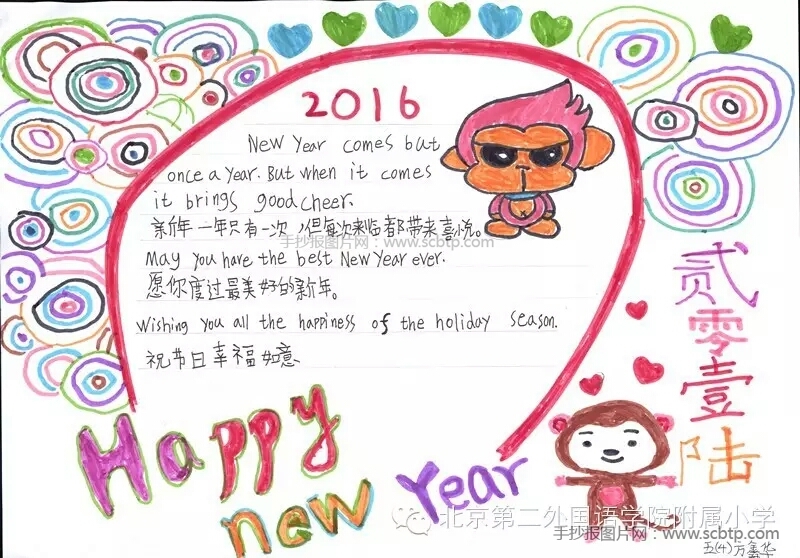 2016
New Year comes but
once a year. But when it comes
it brings good cheer.
新年一年只有一次，但每次来临都带来喜悦。
手抄报图片网：www.scbtp.com
May you have the best New Year ever.
愿你度过最美好的新年。
Wishing you all the happiness of the holiday season.
祝节日幸福如意
贰零壹陆
Happy
new Year
北京第二外国语学院附属小学
手抄报图片网：www.scbtp.com
五(4)